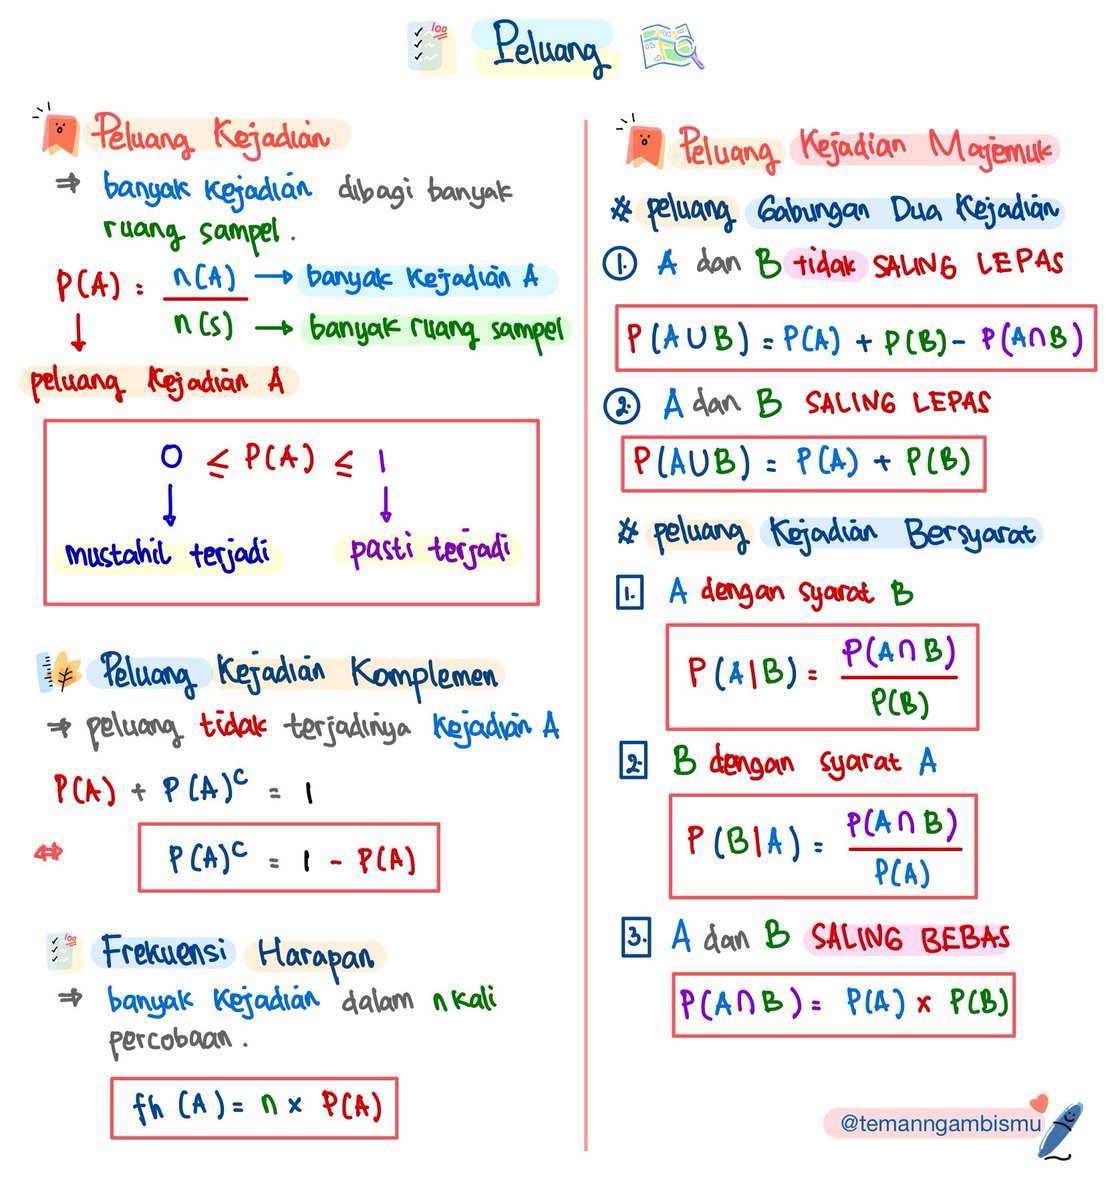 Peluang
Peluang Kejadian
⇒ banyak kejadian dibagi banyak
ruang sampel.
P(A) = n(A) → banyak kejadian A
n(s) → banyak ruang sampel
↓
peluang kejadian A
0 ≤ P(A) ≤ 1
↓ ↓
mustahil terjadi pasti terjadi
Peluang Kejadian Komplemen
⇒ peluang tidak terjadinya kejadian A
P(A) + P(A)ᶜ = 1
⇔ P(A)ᶜ = 1 - P(A)
100
Frekuensi Harapan
⇒ banyak kejadian dalam n kali
percobaan.
fh (A) = n × P(A)
Peluang Kejadian Majemuk
# peluang Gabungan Dua Kejadian
1. A dan B tidak SALING LEPAS
P(A∪B) = P(A) + P(B) - P(A∩B)
2. A dan B SALING LEPAS
P(A∪B) = P(A) + P(B)
# peluang Kejadian Bersyarat
1. A dengan syarat B
P(A|B) = P(A∩B)
P(B)
2. B dengan syarat A
P(B|A) = P(A∩B)
P(A)
3. A dan B SALING BEBAS
P(A∩B) = P(A) × P(B)
@temanngambismu